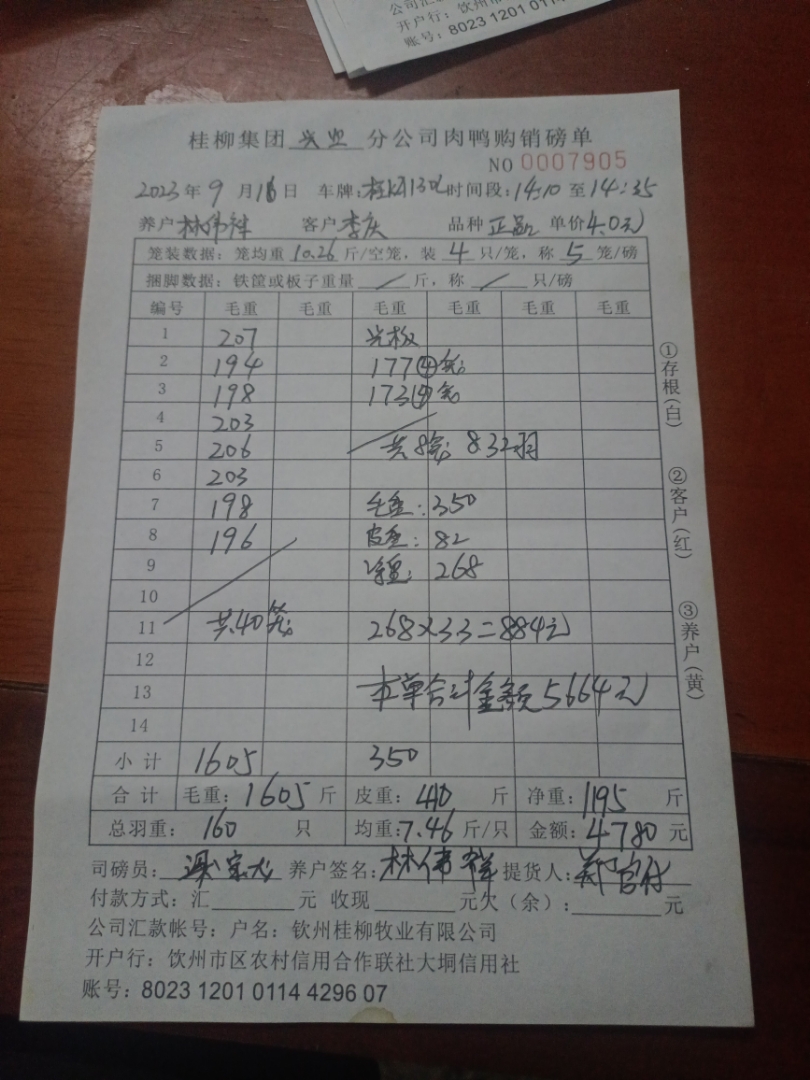 公司汇
开户行：钦州
账号：8023 1201 0114
桂柳集团 兴业 分公司肉鸭购销磅单
NO 0007905
2023年9月16日 车牌： 时间段：14:10至14:35
养户林伟祥 客户李庆 品种正品 单价4.0元
笼装数据：笼均重10.26斤/空笼，装4只/笼，称5笼/磅
捆脚数据：铁筐或板子重量／斤，称／只/磅
编号 毛重 毛重 毛重 毛重 毛重 毛重
1 207
2 194 177④笼
3 198 173④笼
4 203
5 206 共8笼
6 203
7 198 毛重：350
8 196 皮重：82
9 净重：268
10
11 共40笼 268×3.3=884元
12
13 本单合计金额5664元
14
小计 1605 350
合计 毛重：1605斤 皮重：410斤 净重：1195斤
总羽重：160只 均重：7.46斤/只 金额：4780元
司磅员： 养户签名：林伟祥 提货人：
付款方式：汇 元 收现 元欠（余）： 元
公司汇款帐号：户名：钦州桂柳牧业有限公司
开户行：钦州市区农村信用合作联社大垌信用社
账号：8023 1201 0114 4296 07
①存根（白）
②客户（红）
③养户（黄）